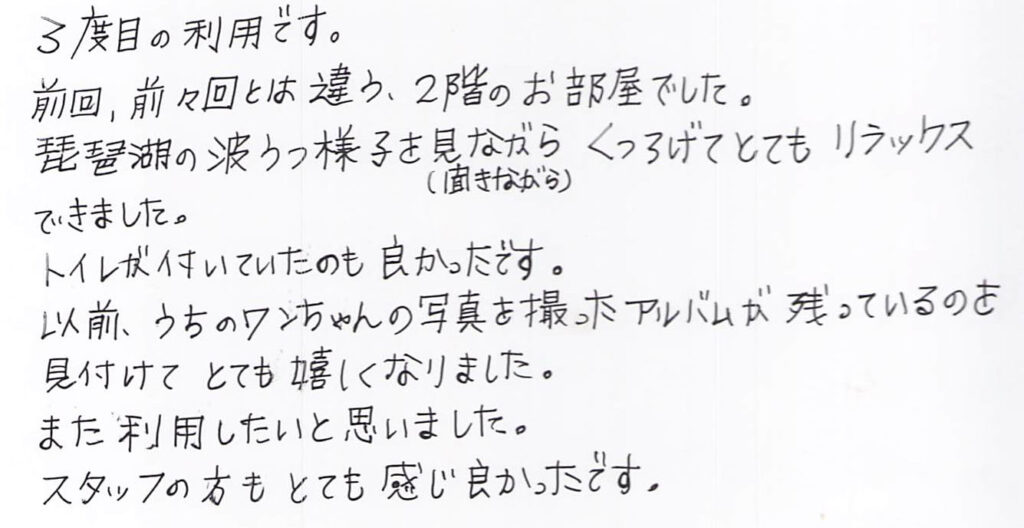 3度目の利用です。
前回,前々回とは違う、2階のお部屋でした。
琵琶湖の波うつ様子を見ながら くつろげてとても リラックス
(聞きながら)
できました。
トイレが付いていたのも 良かったです。
以前、うちのワンちゃんの写真を撮ったアルバムが 残っているのを
見付けて とても 嬉しくなりました。
また 利用したいと思いました。
スタッフの方も とても 感じ良かったです。